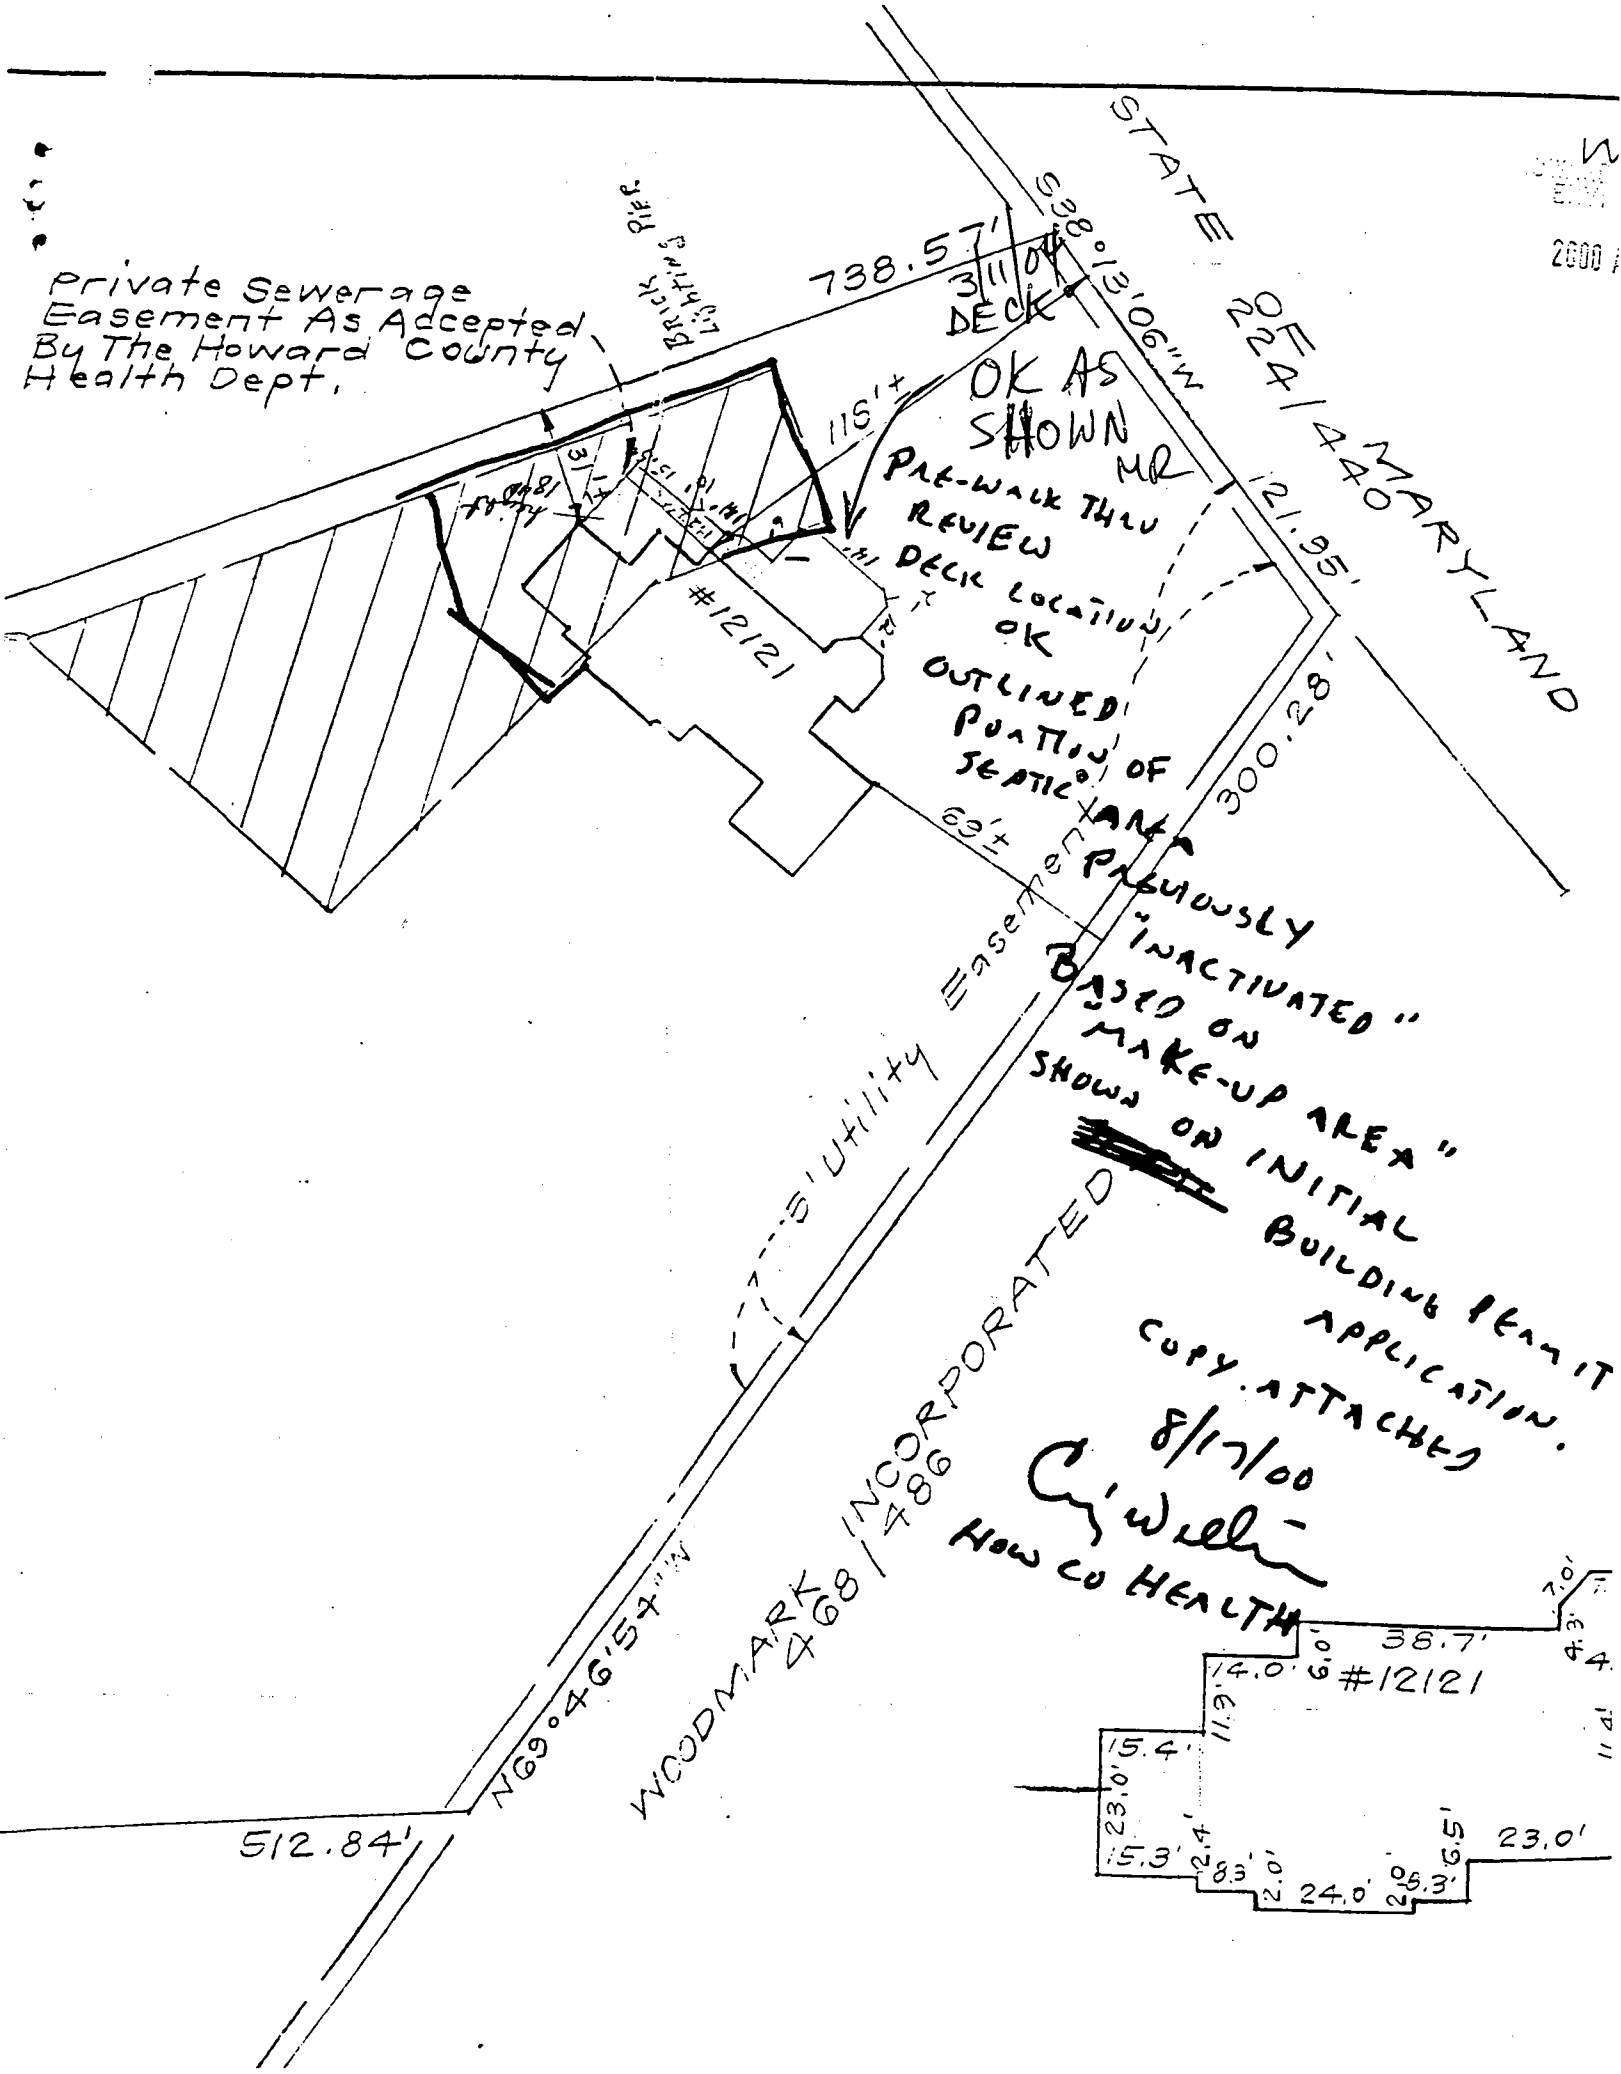 Private Sewerage
Easement As Accepted
By The Howard County
Health Dept.
BRICK
Lighting Piers
738.57'
3/11/04
DECK
OK AS
SHOWN
MR
S38°13'06"W
STATE OF MARYLAND
224/440
2000
121.95'
300.28'
118'±
31'±
height
18
15.5
10'
14'
14'
12'
#12121
PRE-WALK THRU
REVIEW
DECK LOCATION
OK
OUTLINED
PORTION OF
SEPTIC AREA
PREVIOUSLY
"INACTIVATED"
BASED ON
"MAKE-UP AREA"
SHOWN ON INITIAL
BUILDING PERMIT
APPLICATION.
COPY ATTACHED
8/17/00
HOW CO HEALTH
63'±
5' Utility Easement
N69°46'54"W
WOODMARK INCORPORATED
468/486
512.84'
7.0'
4.3'
38.7'
6.0'
14.0'
#12121
11.3'
15.4'
23.0'
15.3'
2.4'
8.3'
2.0'
24.0'
2.0'
8.3'
6.5'
23.0'